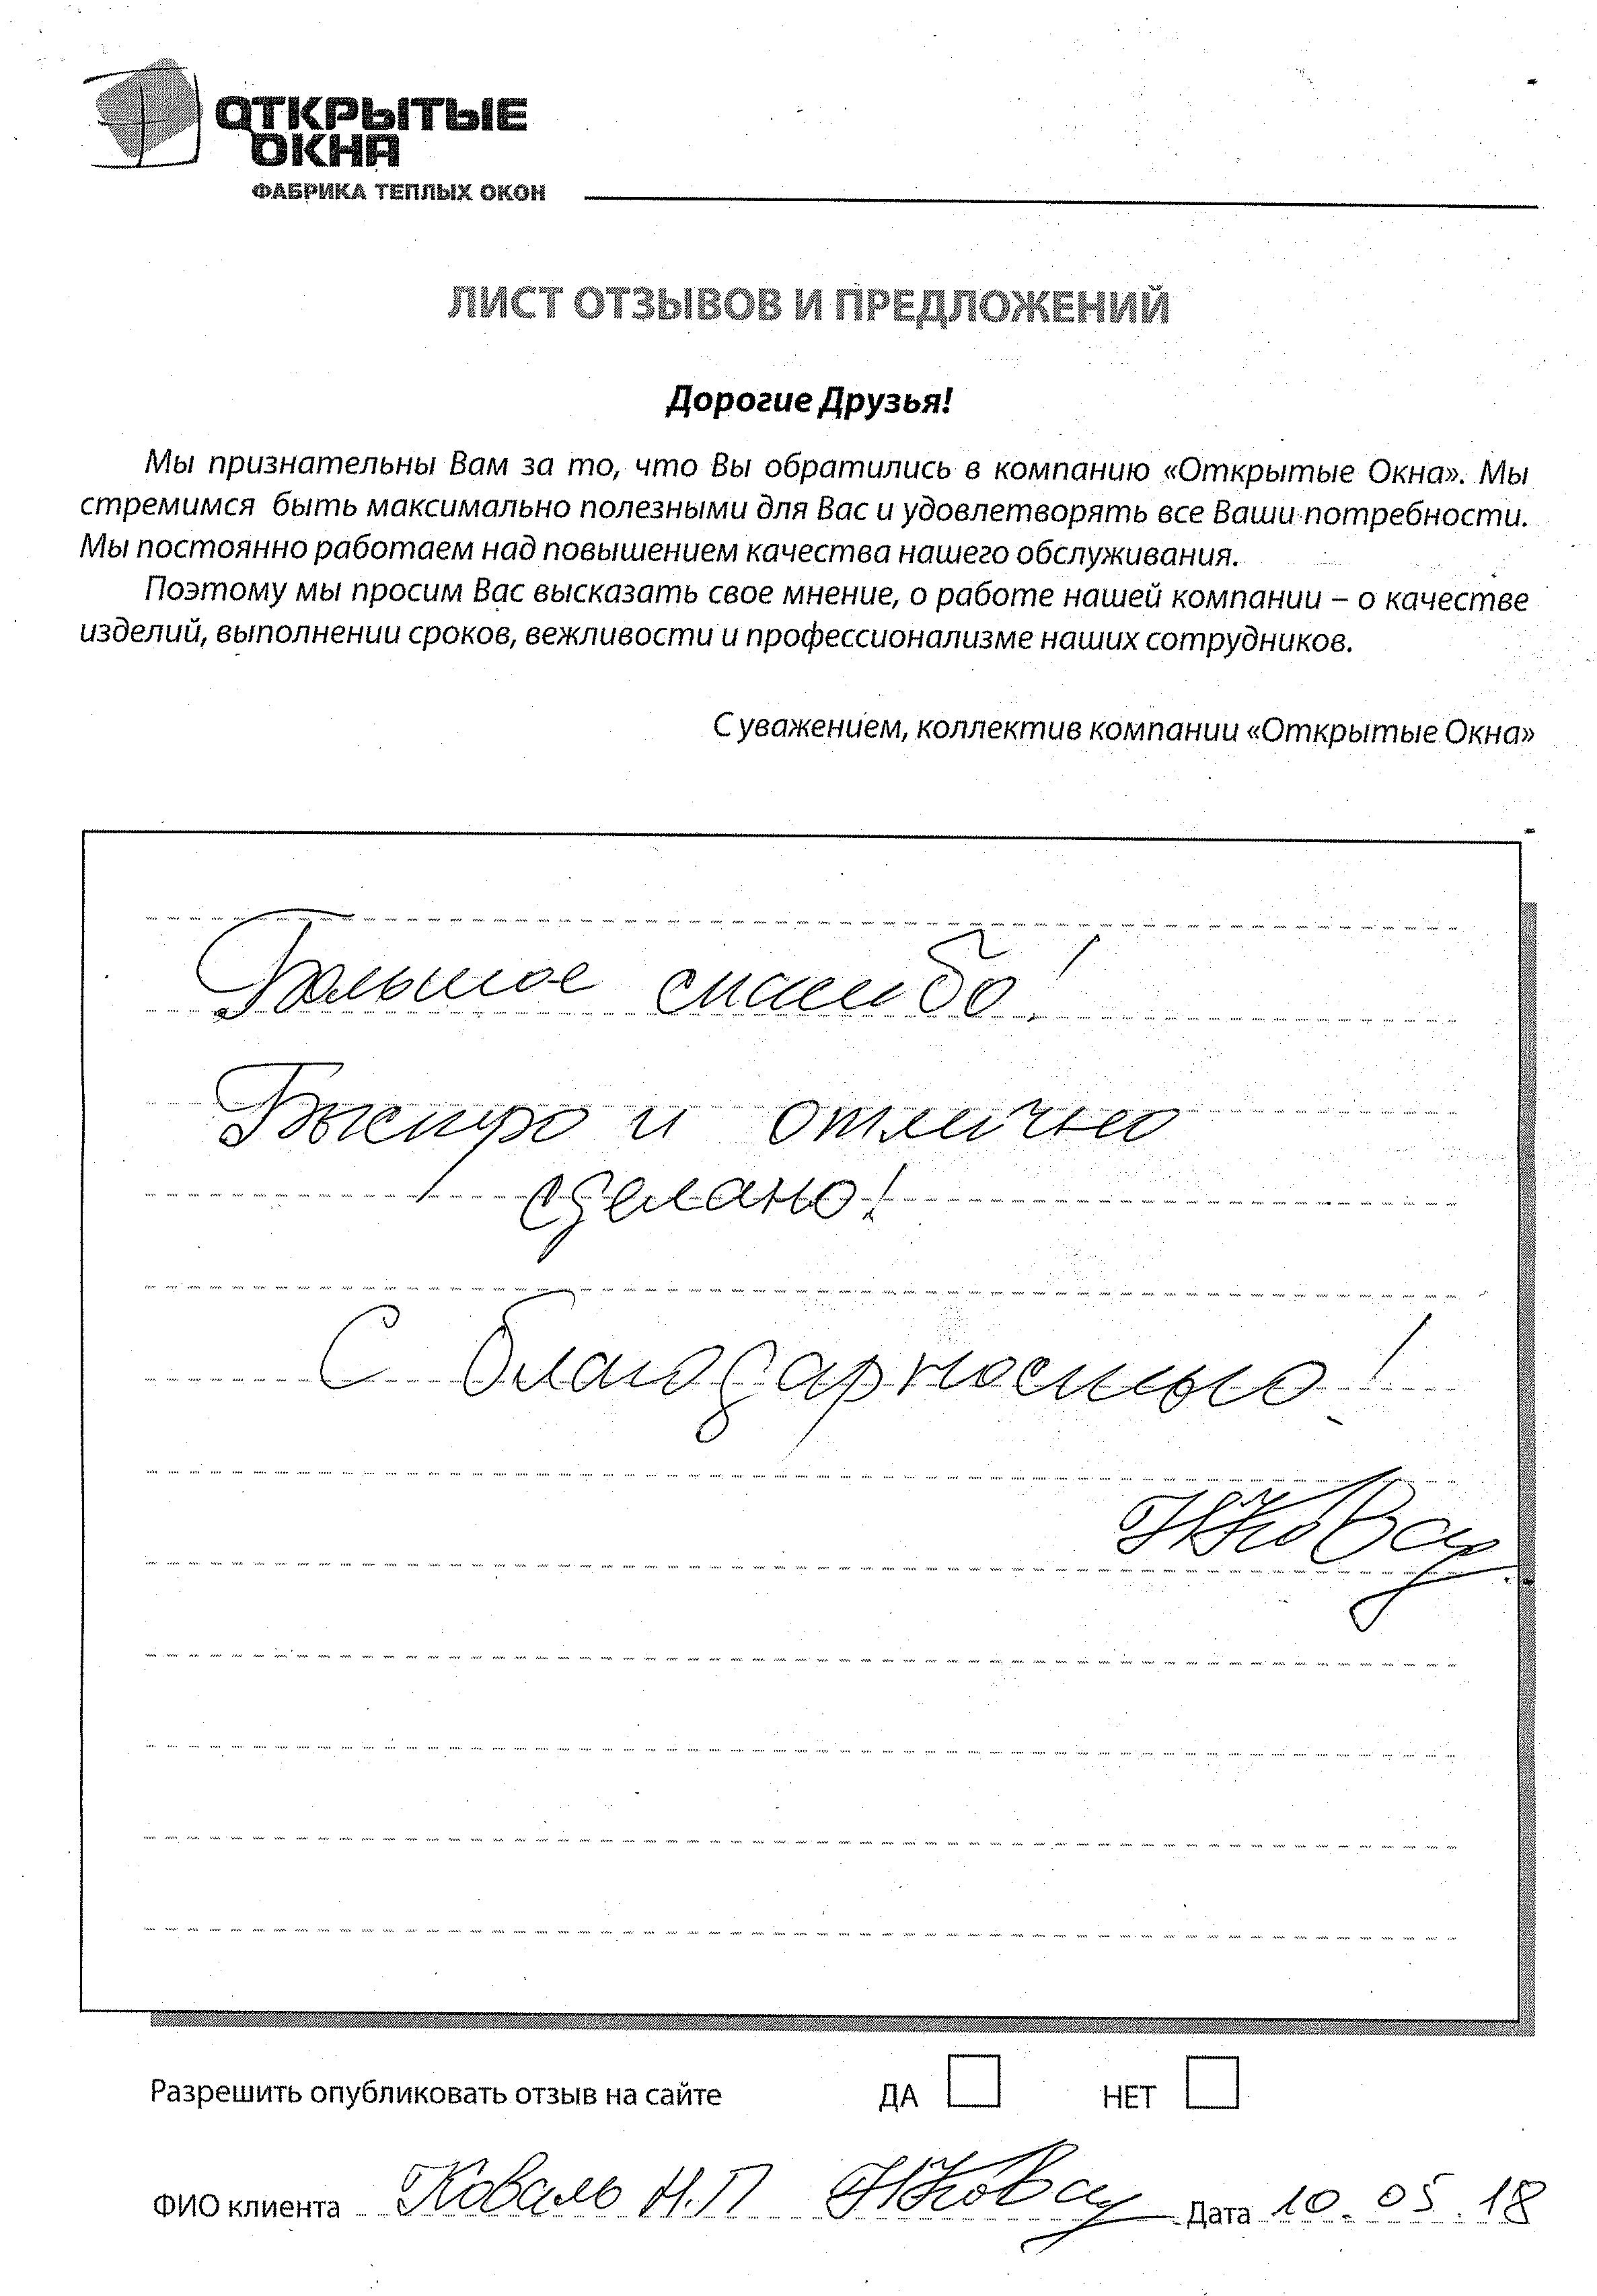 ОТКРЫТЫЕ
ОКНА
ФАБРИКА ТЕПЛЫХ ОКОН
ЛИСТ ОТЗЫВОВ И ПРЕДЛОЖЕНИЙ
Дорогие Друзья!
Мы признательны Вам за то, что Вы обратились в компанию «Открытые Окна». Мы
стремимся быть максимально полезными для Вас и удовлетворять все Ваши потребности.
Мы постоянно работаем над повышением качества нашего обслуживания.
Поэтому мы просим Вас высказать свое мнение, о работе нашей компании – о качестве
изделий, выполнении сроков, вежливости и профессионализме наших сотрудников.
С уважением, коллектив компании «Открытые Окна»
Большое спасибо!
Быстро и отлично
сделано!
С благодарностью!
Разрешить опубликовать отзыв на сайте ДА НЕТ
ФИО клиента Коваль Н.П Дата 10.05.18